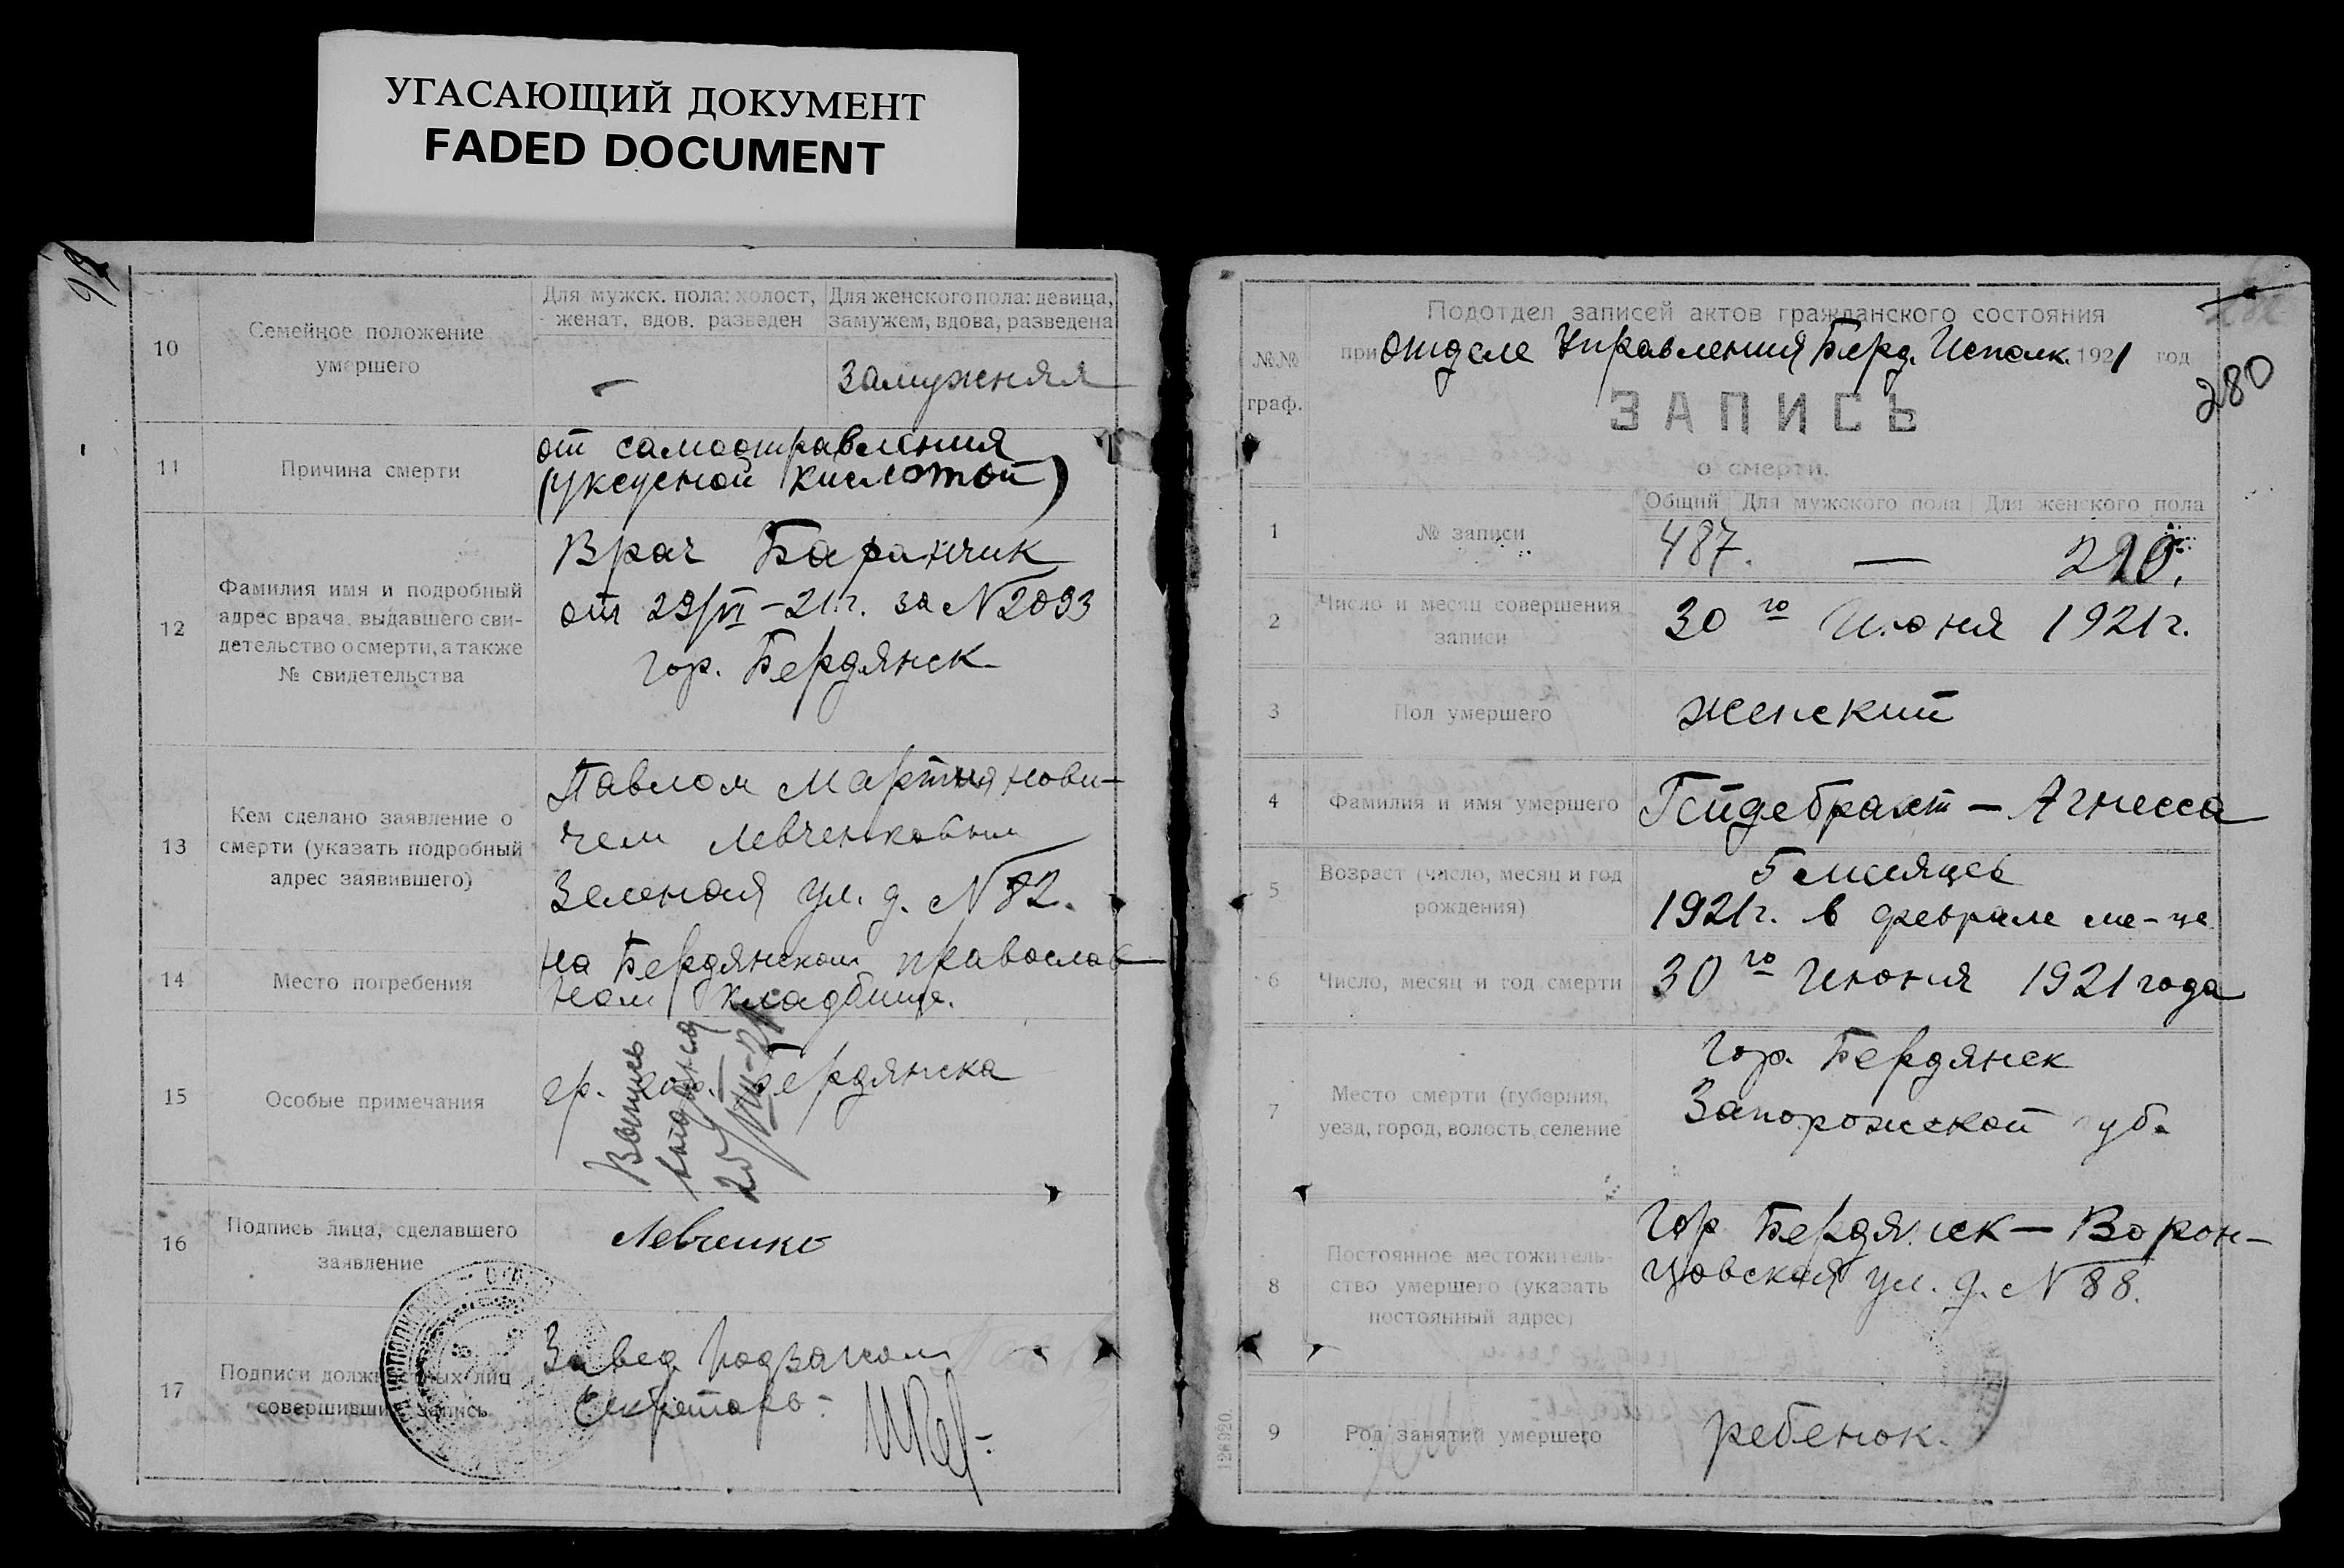 УГАСАЮЩИЙ ДОКУМЕНТ
FADED DOCUMENT
10
Семейное положение
умершего
Для мужск. пола: холост,
женат, вдов. разведен
Для женского пола: девица,
замужем, вдова, разведена
—
замужняя
11
Причина смерти
от самоотравления
(уксусной кислотой)
12
Фамилия имя и подробный
адрес врача, выдавшего сви-
детельство о смерти, а также
№ свидетельства
Врач Баранчик
от 29/VI – 21 г. за № 2093
гор. Бердянск
13
Кем сделано заявление о
смерти (указать подробный
адрес заявившего)
Павлом Мартынови-
чем Левченковым
Зеленая ул. д. № 82.
14
Место погребения
на Бердянском православ
ном кладбище.
15
Особые примечания
гр. гор. Бердянска
Выпись
выдана
25/VIII-21
16
Подпись лица, сделавшего
заявление
Левченко
17
Подписи должностных лиц
совершивших запись
Завед. Подзагсом
Секретарь:
Подотдел записей актов гражданского состояния
при отделе Управления Берд. Исполк. 1921 год
280
№№
граф.
ЗАПИСЬ
о смерти.
Общий
Для мужского пола
Для женского пола
1
№ записи
487.
—
210.
2
Число и месяц совершения
записи
30го Июня 1921 г.
3
Пол умершего
женский
4
Фамилия и имя умершего
Гейдебрахт – Агнесса
5
Возраст (число, месяц и год
рождения)
5 месяцев
1921 г. в феврале ме-це
6
Число, месяц и год смерти
30го Июня 1921 года
7
Место смерти (губерния,
уезд, город, волость, селение
Гор. Бердянск
Запорожской губ.
8
Постоянное местожитель-
ство умершего (указать
постоянный адрес)
Гор Бердянск – Ворон-
цовская ул. д. № 88.
9
Род занятий умершего
ребенок.